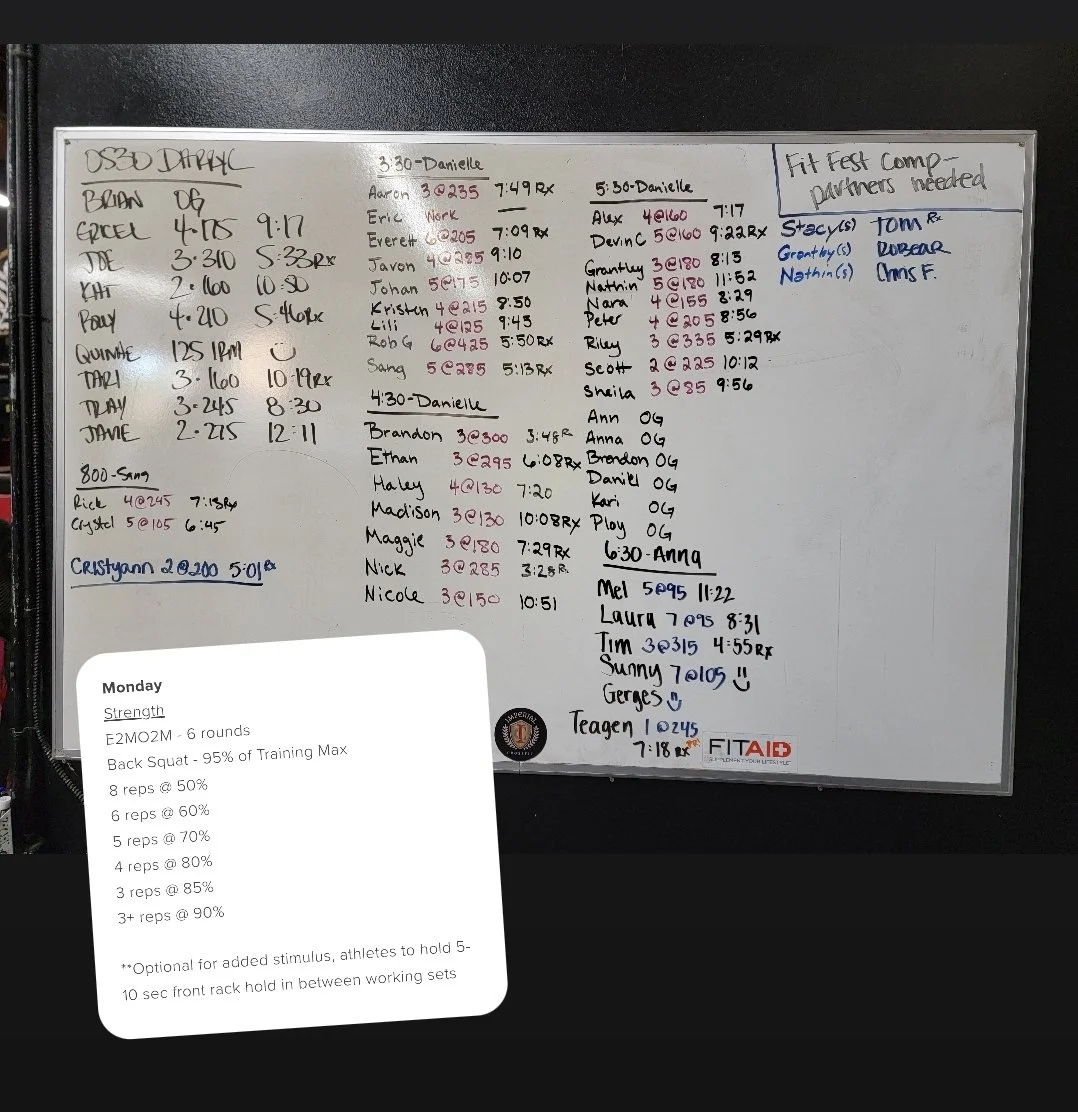 0530 DARRYL
BRIAN OG
4·175 9:17
JOE 3·310 5:33Rx
KAT 2·160 10:50
4·210 5:46Rx
125 1RM
TARI 3·160 10:19Rx
TRAY 3·245 8:30
JAMIE 2·275 12:11
800-Sang
Rick 4@245 7:13Rx
Crystal 5@105 6:45
Cristyann 2@200 5:01Rx
3:30-Danielle
Aaron 3@235 7:49 Rx
Eric Work —
Everett 6@205 7:09 Rx
Javon 4@285 9:10
Johan 5@175 10:07
Kristen 4@215 8:50
Lili 4@125 9:43
Rob G 6@425 5:50Rx
Sang 5@285 5:13Rx
4:30-Danielle
Brandon 3@300 3:48R
Ethan 3@295 6:08Rx
Haley 4@130 7:20
Madison 3@130 10:08Rx
Maggie 3@180 7:29Rx
Nick 3@285 3:28R
Nicole 3@150 10:51
5:30-Danielle
Alex 4@160 7:17
Devin C 5@160 9:22Rx
Grantley 3@180 8:13
Nathin 5@180 11:52
Nara 4@155 8:29
Peter 4@205 8:56
Riley 3@335 5:29Rx
Scott 2@225 10:12
Sheila 3@85 9:56
Ann OG
Anna OG
Brendon OG
Daniel OG
Kari OG
Ploy OG
6:30-Anna
Mel 5@95 11:22
Laura 7@95 8:31
Tim 3@315 4:55Rx
Sunny 7@105
Gerges
Teagen 1@245
7:18 Rx PR!
Fit Fest Comp-
partners needed
Stacy(s) TOM Rx
Grantley(s) ROBEAR
Nathin(s) Chris F.
IMPERIAL
CROSSFIT
FITAID
SUPPLEMENT YOUR LIFESTYLE
Monday
Strength
E2MO2M - 6 rounds
Back Squat - 95% of Training Max
8 reps @ 50%
6 reps @ 60%
5 reps @ 70%
4 reps @ 80%
3 reps @ 85%
3+ reps @ 90%
**Optional for added stimulus, athletes to hold 5-
10 sec front rack hold in between working sets